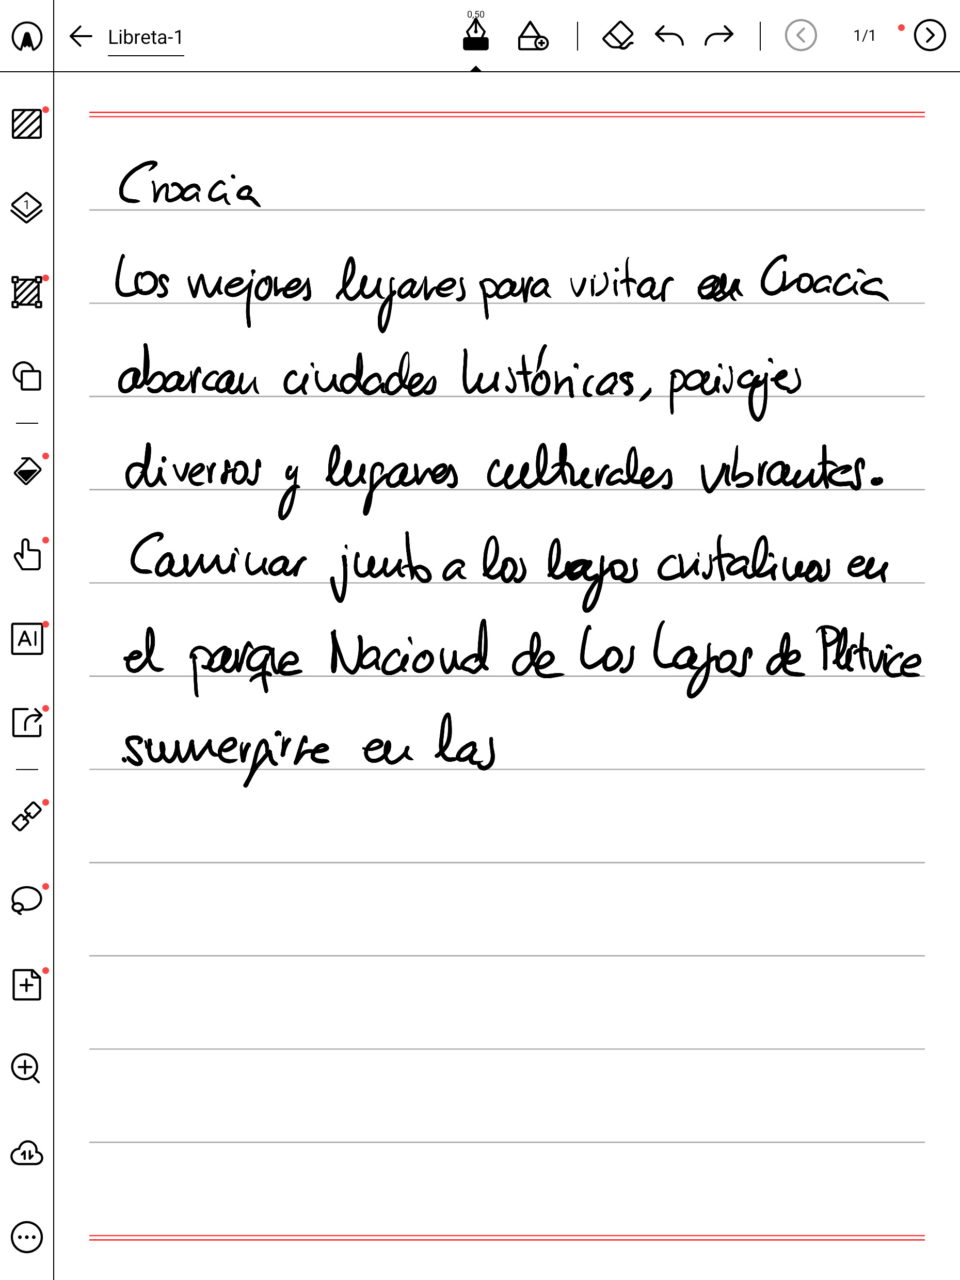 0.50
Libreta-1
1/1
1
AI
Croacia
Los mejores lugares para visitar en Croacia
abarcan ciudades históricas, paisajes
diversos y lugares culturales vibrantes.
Caminar junto a los lagos cristalinos en
el parque Nacional de Los Lagos de Plitvice
sumergirse en las